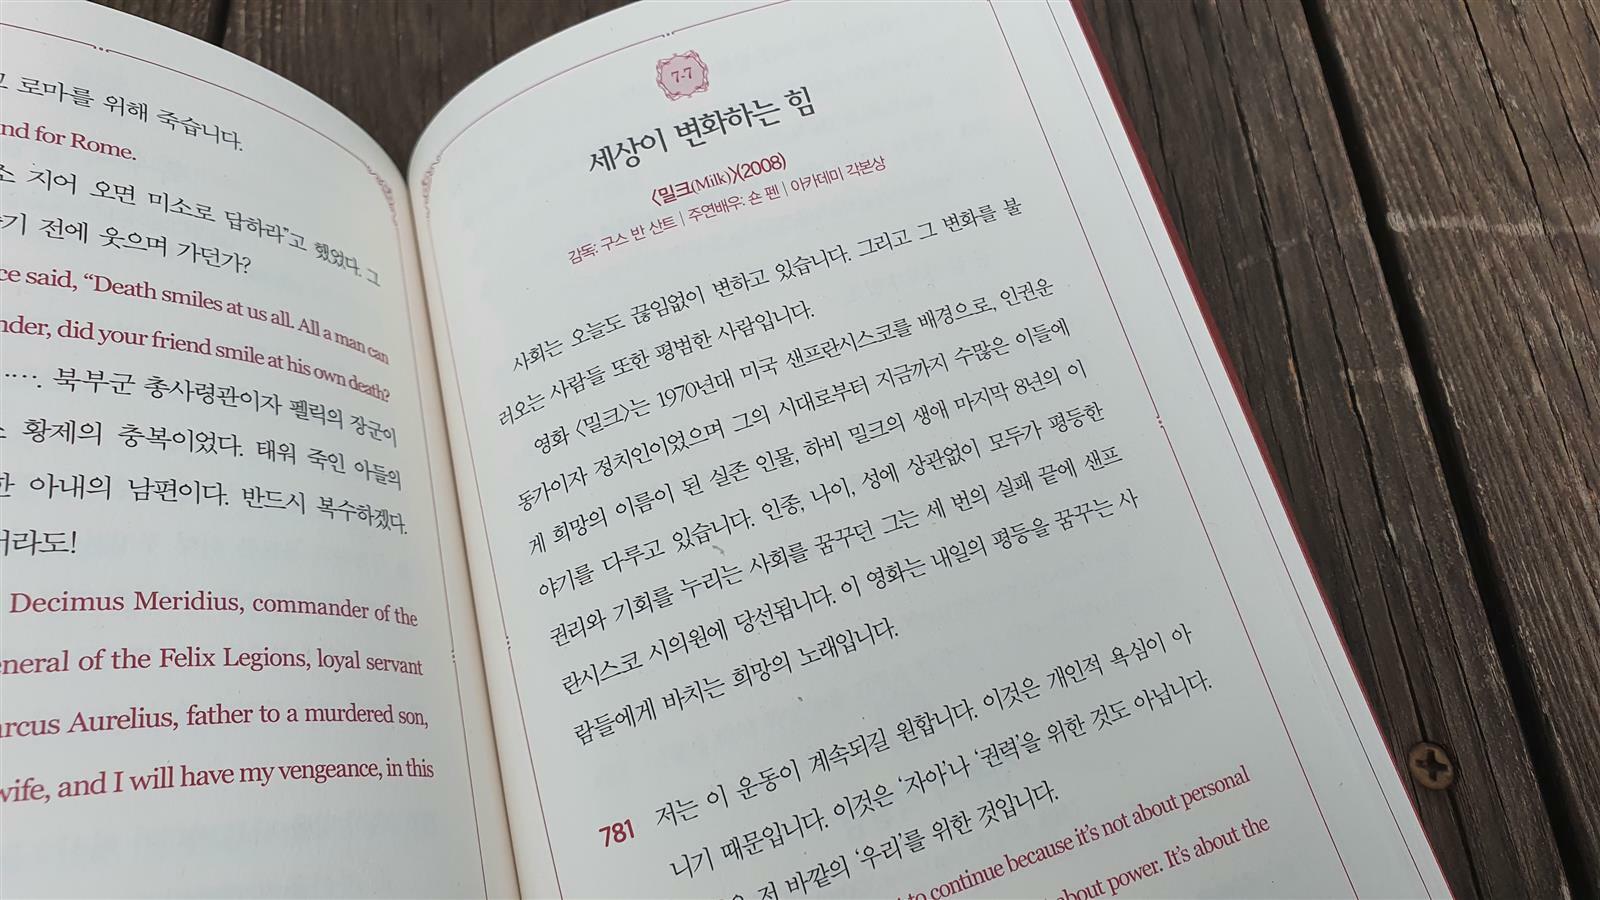 로마를 위해 죽습니다.
and for Rome.
지어 오면 미소로 답하라”고 했었다. 그
기 전에 웃으며 가던가?
ce said, “Death smiles at us all. All a man can
nder, did your friend smile at his own death?
…. 북부군 총사령관이자 펠릭의 장군이
황제의 충복이었다. 태워 죽인 아들의
한 아내의 남편이다. 반드시 복수하겠다.
서라도!
Decimus Meridius, commander of the
eneral of the Felix Legions, loyal servant
arcus Aurelius, father to a murdered son,
wife, and I will have my vengeance, in this
7-7
세상이 변화하는 힘
〈밀크(Milk)〉(2008)
감독: 구스 반 산트 | 주연배우: 숀 펜 | 아카데미 각본상
사회는 오늘도 끊임없이 변하고 있습니다. 그리고 그 변화를 불
러오는 사람들 또한 평범한 사람입니다.
영화 〈밀크〉는 1970년대 미국 샌프란시스코를 배경으로, 인권운
동가이자 정치인이었으며 그의 시대로부터 지금까지 수많은 이들에
게 희망의 이름이 된 실존 인물, 하비 밀크의 생애 마지막 8년의 이
야기를 다루고 있습니다. 인종, 나이, 성에 상관없이 모두가 평등한
권리와 기회를 누리는 사회를 꿈꾸던 그는 세 번의 실패 끝에 샌프
란시스코 시의원에 당선됩니다. 이 영화는 내일의 평등을 꿈꾸는 사
람들에게 바치는 희망의 노래입니다.
781 저는 이 운동이 계속되길 원합니다. 이것은 개인적 욕심이 아
니기 때문입니다. 이것은 ‘자아’나 ‘권력’을 위한 것도 아닙니다.
저 바깥의 ‘우리’를 위한 것입니다.
to continue because it’s not about personal
about power. It’s about the